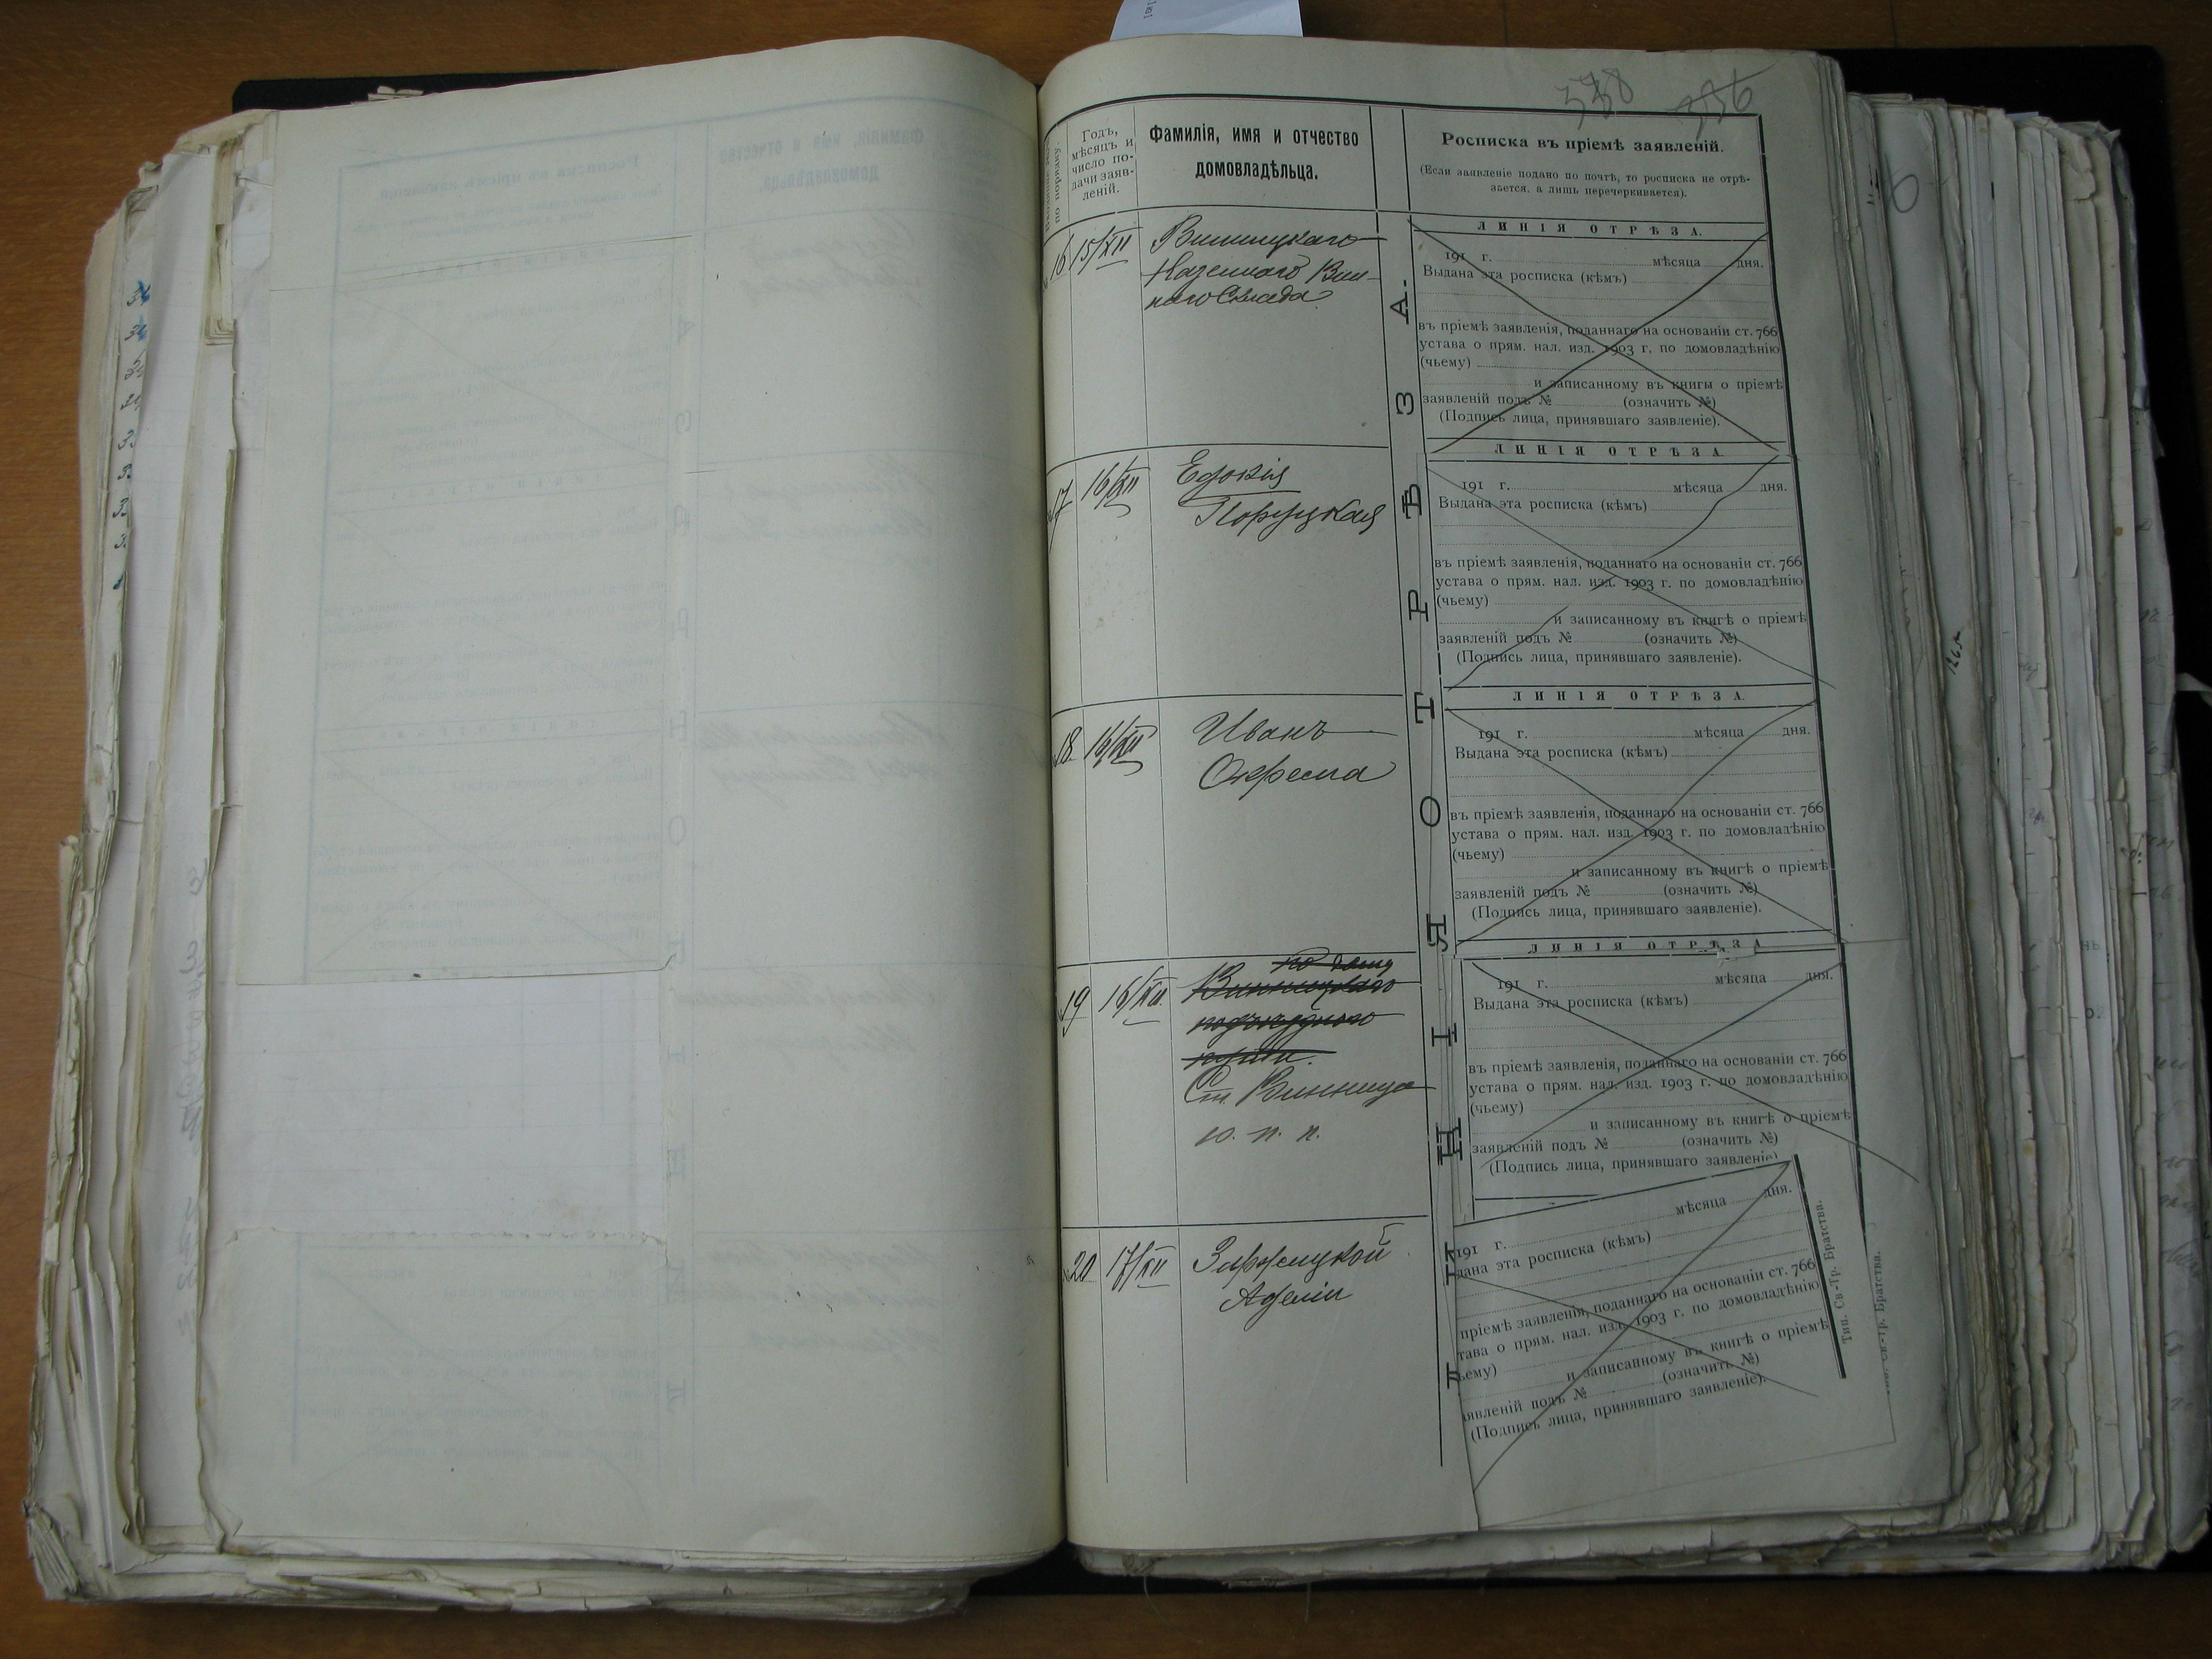 338 336
по порядку.
Годъ,
мѣсяцъ и
число по-
дачи заяв-
леній.
Фамилія, имя и отчество
домовладѣльца.
Росписка въ пріемѣ заявленій.
(Если заявленіе подано по почтѣ, то росписка не отрѣ-
зается, а лишь перечеркивается).
ЛИНІЯ ОТРѢЗА.
16 15/XII Винницкаго
Казеннаго Вин-
наго Склада
ЛИНІЯ ОТРѢЗА.
191 г. мѣсяца дня.
Выдана эта росписка (кѣмъ)
въ пріемѣ заявленія, поданнаго на основаніи ст. 766
устава о прям. нал. изд. 1903 г. по домовладѣнію
(чьему)
и записанному въ книгы о пріемѣ
заявленій подъ № (означить №)
(Подпись лица, принявшаго заявленіе).
17 16/XII
Поруцкая
ЛИНІЯ ОТРѢЗА
191 г. мѣсяца дня.
Выдана эта росписка (кѣмъ)
въ пріемѣ заявленія, поданнаго на основаніи ст. 766
устава о прям. нал. изд. 1903 г. по домовладѣнію
(чьему)
и записанному въ книгѣ о пріемѣ
заявленій подъ № (означить №)
(Подпись лица, принявшаго заявленіе).
18 16/XII Иванъ
ЛИНІЯ ОТРѢЗА.
191 г. мѣсяца дня.
Выдана эта росписка (кѣмъ)
въ пріемѣ заявленія, поданнаго на основаніи ст. 766
устава о прям. нал. изд. 1903 г. по домовладѣнію
(чьему)
и записанному въ книгѣ о пріемѣ
заявленій подъ № (означить №)
(Подпись лица, принявшаго заявленіе).
19 16/XII
Винницкаго
подъѣзднаго
пути.
Ст. Винница
ю. п. п.
ЛИНІЯ ОТРѢЗА
191 г. мѣсяца дня.
Выдана эта росписка (кѣмъ)
въ пріемѣ заявленія, поданнаго на основаніи ст. 766
устава о прям. нал. изд. 1903 г. по домовладѣнію
(чьему)
и записанному въ книгѣ о пріемѣ
заявленій подъ № (означить №)
(Подпись лица, принявшаго заявленіе)
20 17/XII
Аделіи
191 г. мѣсяца дня.
дана эта росписка (кѣмъ)
пріемѣ заявленія, поданнаго на основаніи ст. 766
тава о прям. нал. изд. 1903 г. по домовладѣнію
ьему)
и записанному въ книгѣ о пріемѣ
явленій подъ № (означить №)
(Подпись лица, принявшаго заявленіе).
Тип. Св.-Тр. Братства.
Св.-Тр. Братства.
1265